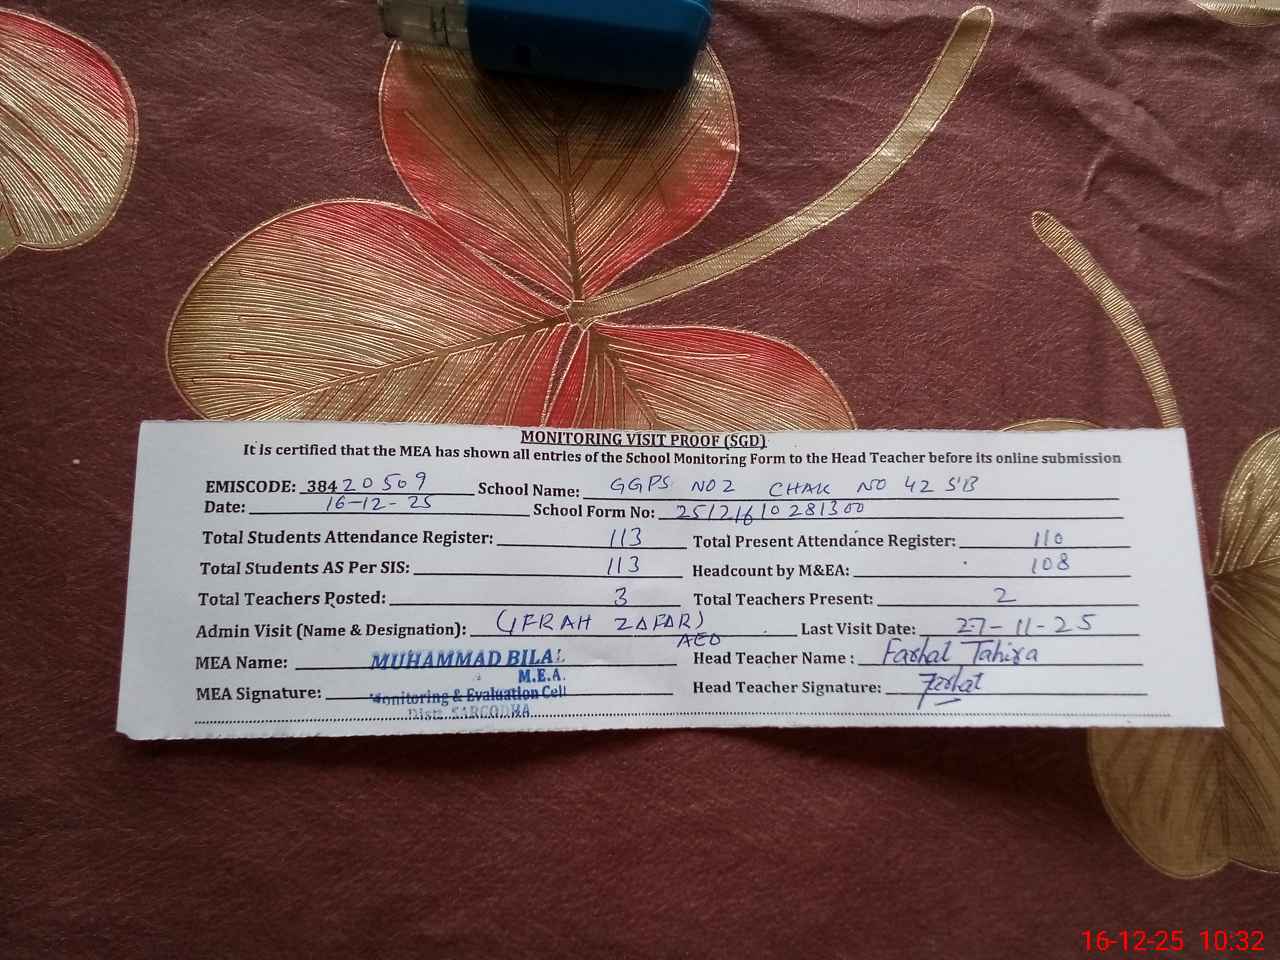 MONITORING VISIT PROOF (SGD)
It is certified that the MEA has shown all entries of the School Monitoring Form to the Head Teacher before its online submission
EMISCODE: 38420509 School Name: GGPS NO2 CHAK NO 42 SB
Date: 16-12-25 School Form No: 25121610281300
Total Students Attendance Register: 113 Total Present Attendance Register: 110
Total Students AS Per SIS: 113 Headcount by M&EA: 108
Total Teachers Posted: 3 Total Teachers Present: 2
Admin Visit (Name & Designation): (IFRAH ZAFAR) AEO Last Visit Date: 27-11-25
MEA Name: MUHAMMAD BILAL Head Teacher Name : Farhat Tahira
M.E.A.
MEA Signature: Monitoring & Evaluation Cell Head Teacher Signature: Farhat
Distt. SARGODHA
16-12-25 10:32